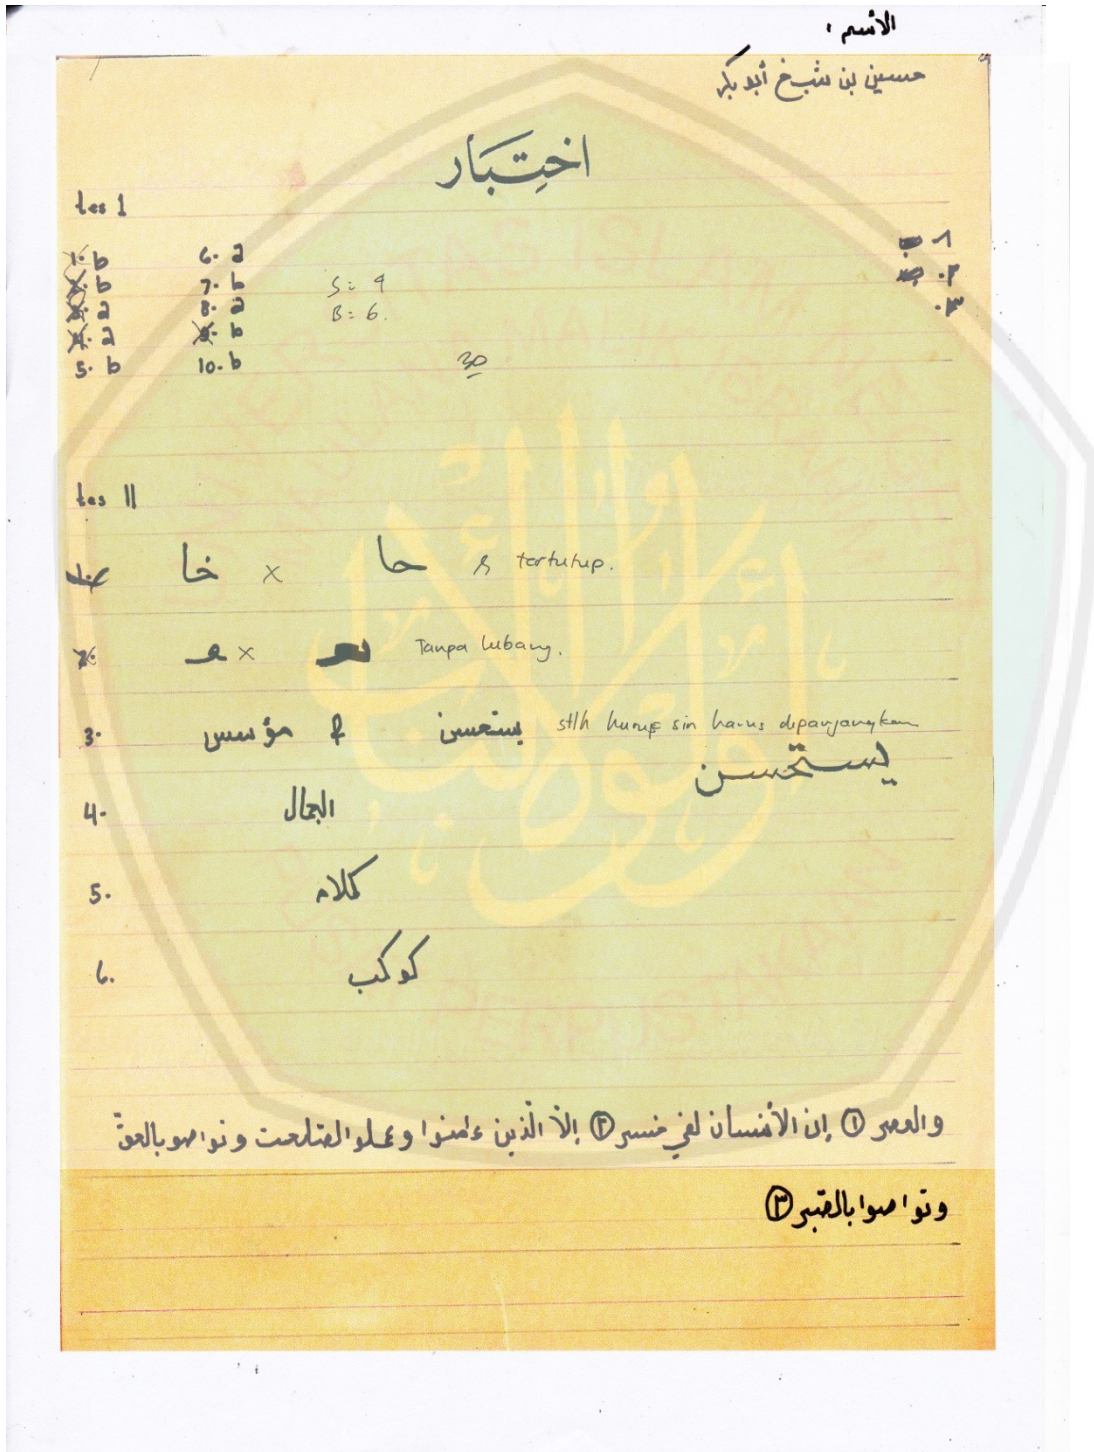 الأسم :
حسين بن شيخ أبو بكر
اختِبَار
tes I
1. b 6. a ١.
2. b 7. b S: 4 ٢.
3. a 8. a B: 6. ٣.
4. a 9. b
5. b 10. b 30
tes II
1. خا x حا tertutup.
2. x Tanpa lubang.
3. مؤسس يستحسن stlh huruf sin harus dipanjangkan
يستحسن
4. الجمال
5. كلام
6. كوكب
والعصر ① إن الأنسان لفي خسر ② إلاّ الّذين ءامنوا وعملو الصّلحت وتواصو بالحقّ
وتواصوا بالصّبر ③